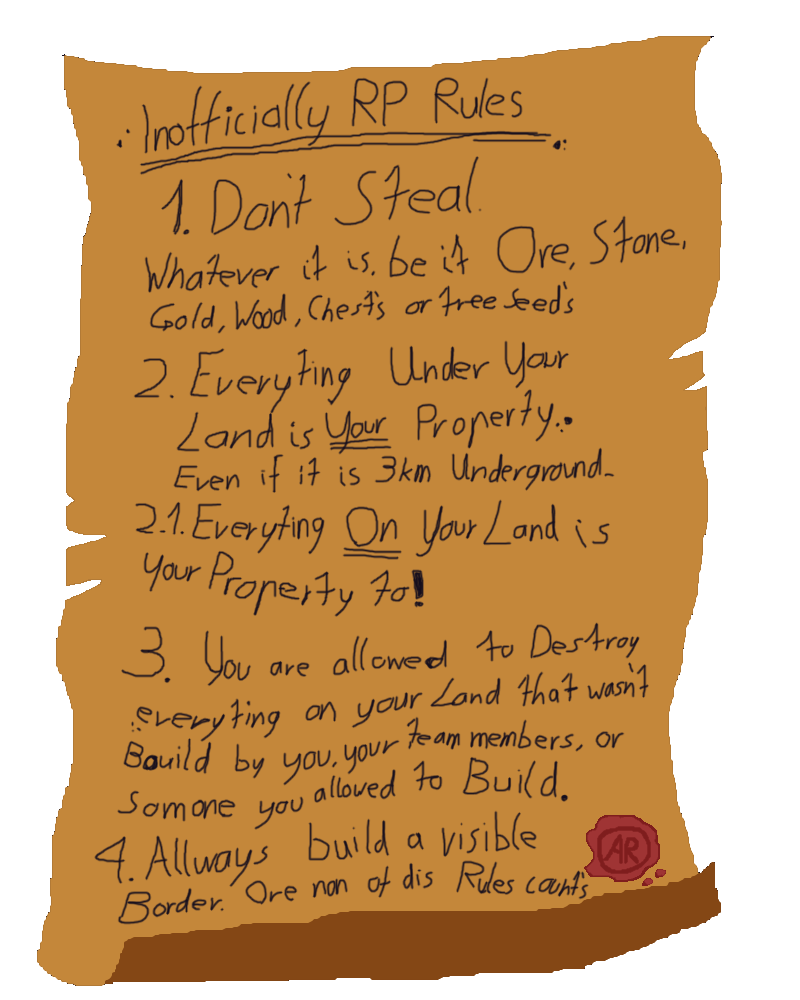 Inofficially RP Rules
1. Don't Steal.
Whatever it is, be it Ore, Stone,
Gold, Wood, Chest's or tree seed's
2. Everyting Under Your
Land is Your Property.
Even if it is 3km Underground.
2.1. Everyting On Your Land is
Your Property to!
3. You are allowed to Destroy
everyting on your Land that wasn't
Bouild by you, your team members, or
Somone you allowed to Build.
4. Allways build a visible
Border. Ore non of dis Rules count's
AR